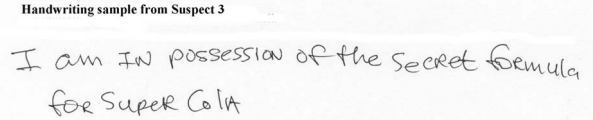 Handwriting sample from Suspect 3
I am IN possession of the secret formula
for Super Cola